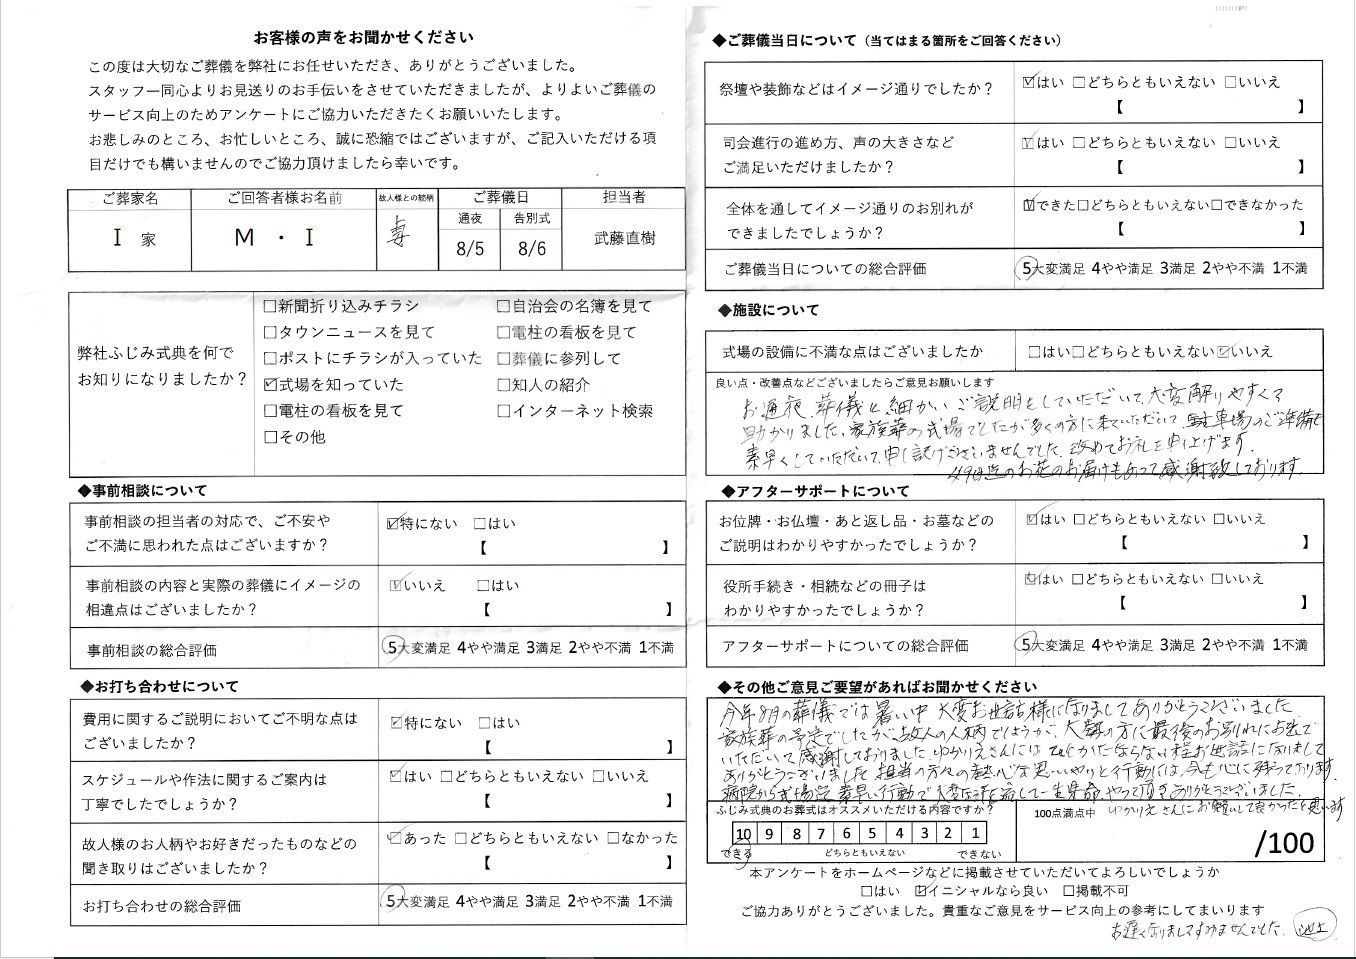 お客様の声をお聞かせください
この度は大切なご葬儀を弊社にお任せいただき、ありがとうございました。
スタッフ一同心よりお見送りのお手伝いをさせていただきましたが、よりよいご葬儀の
サービス向上のためアンケートにご協力いただきたくお願いいたします。
お悲しみのところ、お忙しいところ、誠に恐縮ではございますが、ご記入いただける項
目だけでも構いませんのでご協力頂けましたら幸いです。
ご葬家名 ご回答者様お名前 故人様との続柄 ご葬儀日 担当者
通夜 告別式
I 家 M・I 妻 8/5 8/6 武藤直樹
弊社ふじみ式典を何で
お知りになりましたか？
☐新聞折り込みチラシ ☐自治会の名簿を見て
☐タウンニュースを見て ☐電柱の看板を見て
☐ポストにチラシが入っていた ☐葬儀に参列して
☑式場を知っていた ☐知人の紹介
☐電柱の看板を見て ☐インターネット検索
☐その他
◆事前相談について
事前相談の担当者の対応で、ご不安や
ご不満に思われた点はございますか？
☑特にない ☐はい
【 】
事前相談の内容と実際の葬儀にイメージの
相違点はございましたか？
☑いいえ ☐はい
【 】
事前相談の総合評価 5大変満足 4やや満足 3満足 2やや不満 1不満
◆お打ち合わせについて
費用に関するご説明においてご不明な点は
ございましたか？
☑特にない ☐はい
【 】
スケジュールや作法に関するご案内は
丁寧でしたでしょうか？
☑はい ☐どちらともいえない ☐いいえ
【 】
故人様のお人柄やお好きだったものなどの
聞き取りはございましたか？
☑あった ☐どちらともいえない ☐なかった
【 】
お打ち合わせの総合評価 5大変満足 4やや満足 3満足 2やや不満 1不満
◆ご葬儀当日について（当てはまる箇所をご回答ください）
祭壇や装飾などはイメージ通りでしたか？
☑はい ☐どちらともいえない ☐いいえ
【 】
司会進行の進め方、声の大きさなど
ご満足いただけましたか？
☑はい ☐どちらともいえない ☐いいえ
【 】
全体を通してイメージ通りのお別れが
できましたでしょうか？
☑できた☐どちらともいえない☐できなかった
【 】
ご葬儀当日についての総合評価 5大変満足 4やや満足 3満足 2やや不満 1不満
◆施設について
式場の設備に不満な点はございましたか ☐はい☐どちらともいえない☑いいえ
良い点・改善点などございましたらご意見お願いします
お通夜、葬儀と細かいご説明をしていただいて、大変解りやすくて
助かりました。家族葬の式場でしたが多くの方に来ていただいて、駐車場のご準備を
素早くしていただいて、申し訳けございませんでした。改めてお礼を申し上げます。
49日迄のお花のお届けもあって感謝致しております。
◆アフターサポートについて
お位牌・お仏壇・あと返し品・お墓などの
ご説明はわかりやすかったでしょうか？
☑はい ☐どちらともいえない ☐いいえ
【 】
役所手続き・相続などの冊子は
わかりやすかったでしょうか？
☑はい ☐どちらともいえない ☐いいえ
【 】
アフターサポートについての総合評価 5大変満足 4やや満足 3満足 2やや不満 1不満
◆その他ご意見ご要望があればお聞かせください
今年8月の葬儀では暑い中 大変お世話様になりましてありがとうございました。
家族葬の予定でしたが、故人の人柄でしょうか、大勢の方に最後のお別れにお出で
いただいて感謝しておりました。ゆかりえさんには 程お世話になりまして
ありがとうございました 担当の方々の熱心な思いやりと行動には、今も心に残っております。
病院から式場迄 素早い行動で大変 一生懸命やって頂きありがとうございました。
ゆかりえさんにお願いして良かったと思います
ふじみ式典のお葬式はオススメいただける内容ですか？
10 9 8 7 6 5 4 3 2 1
できる どちらともいえない できない
100点満点中
/100
本アンケートをホームページなどに掲載させていただいてよろしいでしょうか
☐はい ☑イニシャルなら良い ☐掲載不可
ご協力ありがとうございました。貴重なご意見をサービス向上の参考にしてまいります
お遅くなりましてすみませんでした。 以上